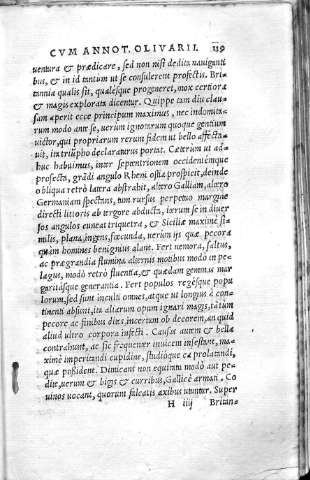 CVM ANNOT. OLIVARII. 139
uentura & prædicare, sed non nisi deditis nauiganti
bus, & in id tantùm ut se consulerent profectis. Bri-
tannia qualis sit, qualesque progeneret, mox certiora
& magis explorata dicentur. Quippe tam diu clau-
sam aperit ecce principum maximus, nec indomita-
rum modo ante se, uerum ignotarum quoque gentium
uictor, qui propriarum rerum fidem ut bello affecta-
uit, in triūpho declaraturus portat. Cæterum ut ad-
huc habuimus, inter septentrionem occidentémque
proiecta, grādi angulo Rheni ostia prospicit, dein de
obliqua retrò latera abstrahit, altero Galliam, altero
Germaniam spectans, tum rursus perpetuo margine
directi littoris ab tergore abducta, iterum se in diuer
sos angulos cuneat triquetra, & Siciliæ maximè si-
milis, plana, ingens, fœcunda, uerum ijs quæ pecora
quàm homines benignius alant. Fert nemora, saltus,
ac prægrandia flumina alternis motibus modò in pe-
lagus, modò retrò fluentia, & quædam gemmas mar
garitásque generantia. Fert populos regésque popu
lorum, sed sunt inculti omnes, atque ut longius à con-
tinenti absunt, ita aliarum opum ignari magis, tātùm
pecore ac finibus dites, incertum ob decorem, an quid
aliud ultro corpora infecti. Causas autem & bella
contrahunt, ac sic frequenter inuicem infestant, ma-
ximè imperitandi cupidine, studióque ea prolatandi,
quæ possident. Dimicant non equitatu modò aut pe-
dite, uerum & bigis & curribus, Gallicè armati. Co
uinos uocant, quorum falcatis axibus utuntur. Super
H iiij Britan-